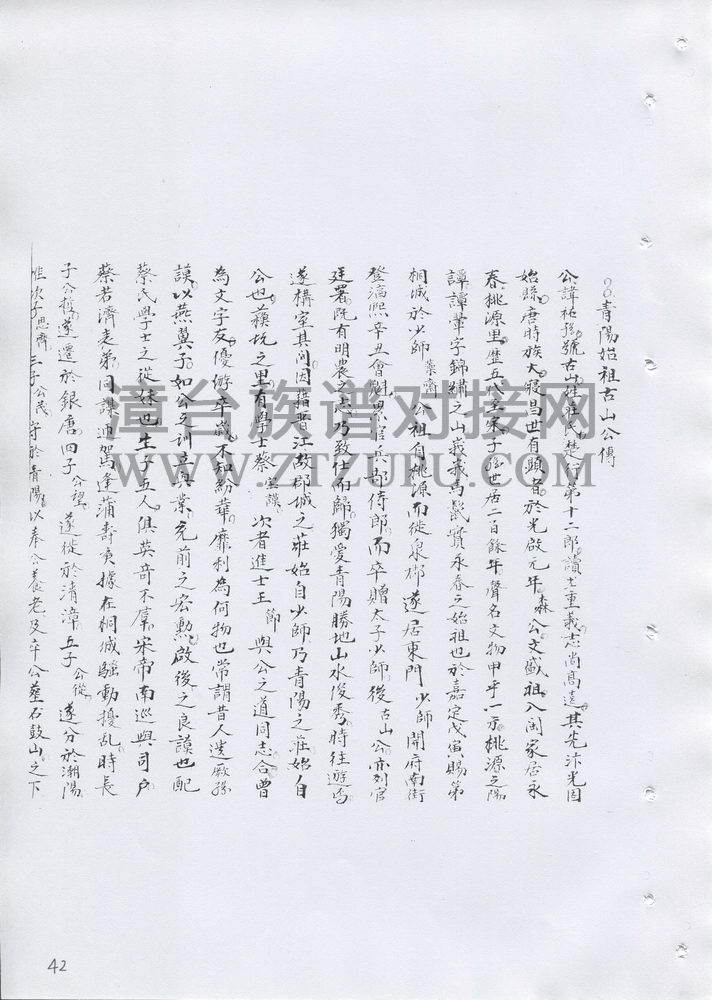 青陽始祖古山公傳
公諱祐孫號古山姓莊氏楚行第十二郎讀書重義志尚高遠其先汴光固
始縣唐時族大寢昌世有顯者於光啟元年森公文盛祖入閩家居永
春桃源里歷五八至宋子孫世居二百餘年聲名文物甲乎一方桃源之陽
譚譚鞏字錦繡之山峩峩馬鬣實永春之始祖也於嘉定戊寅賜第
桐城於少師 公祖有桃源而徙泉郡遂居東門少師開府南街
登淳熙辛丑會魁累官兵部侍郎而卒贈太子少師後古山公亦列官
廷署既有明農之志乃致仕而歸獨愛青陽勝地山水俊秀時往遊焉
遂構室其間因藉晉江故郡城之莊始自少師乃青陽之莊始自
公也蘋坑之里有學士蔡 次者進士王節與公之道同志合曾
為文字友優游卒歲不知紛華靡利為何物也常謂昔人遺厥孫
謨以燕翼子如公之訓 業 前之宏勳啟後之良謨也配
蔡氏學士之從妹也生子五人俱英奇不羣宋帝南巡與司戶
蔡若濟走弟同謀迎駕逢蒲壽庚據在桐城騷動擾亂時長
子公哲遂遷於銀唐四子公望遂徙於清漳五子公從遂分於潮陽
惟次子思齊三子公茂守於青陽以奉公養老及卒公墓石鼓山之下
42
漳台族谱对接网
WWW.ZTZUPU.COM